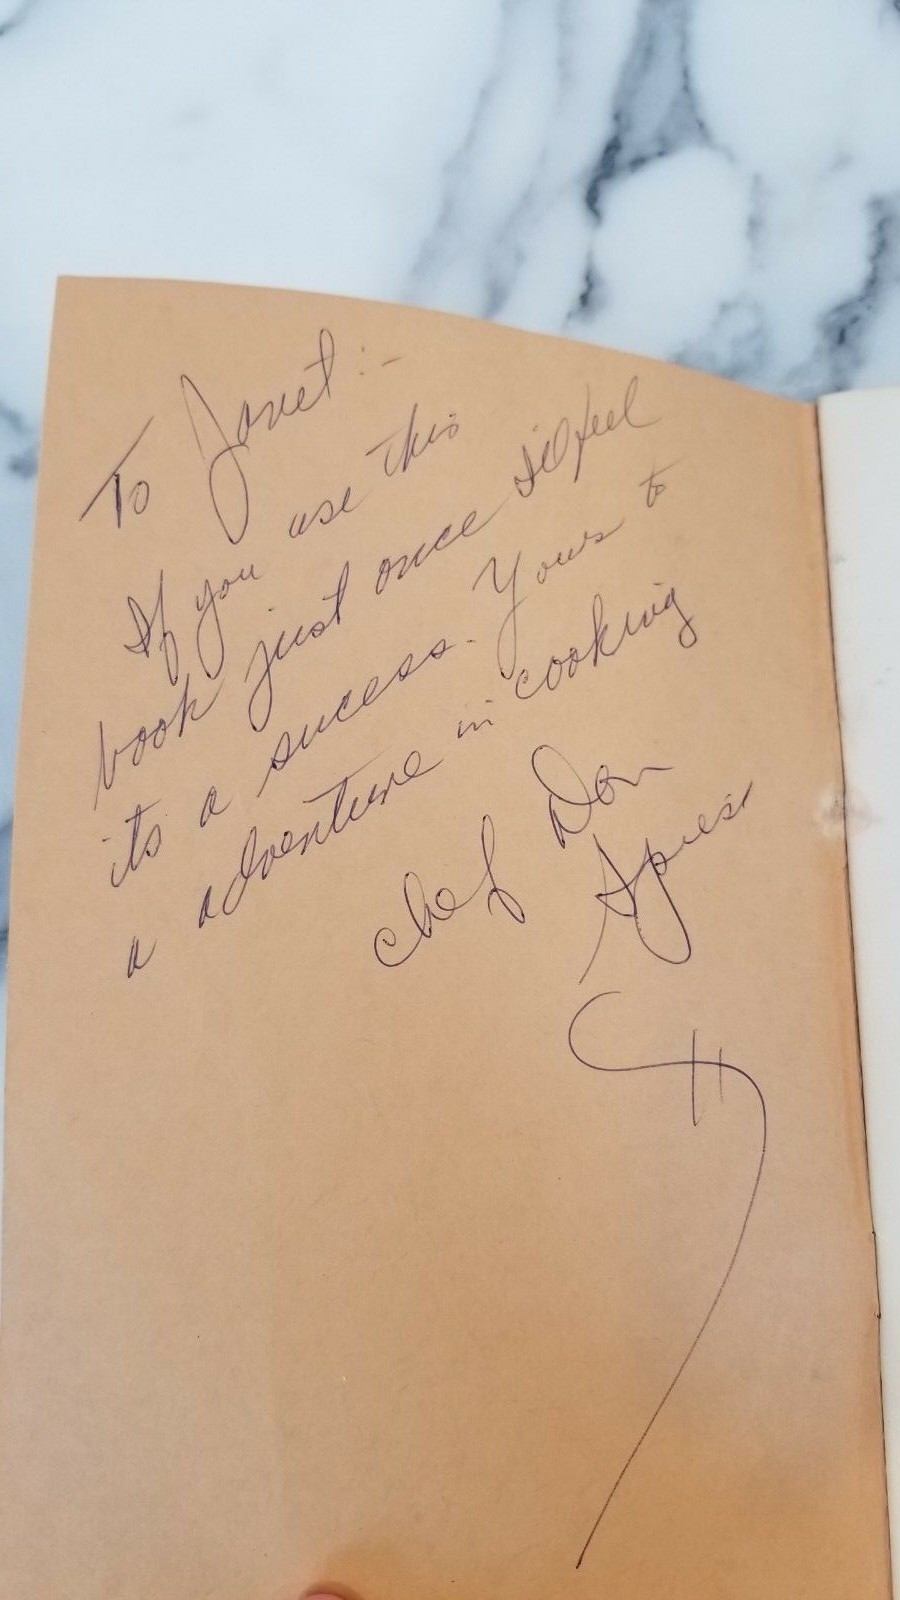 To Janet:-
If you use this
book just once I'd feel
its a sucess. Yours to
a adventure in cooking
Chef Don
Spiess